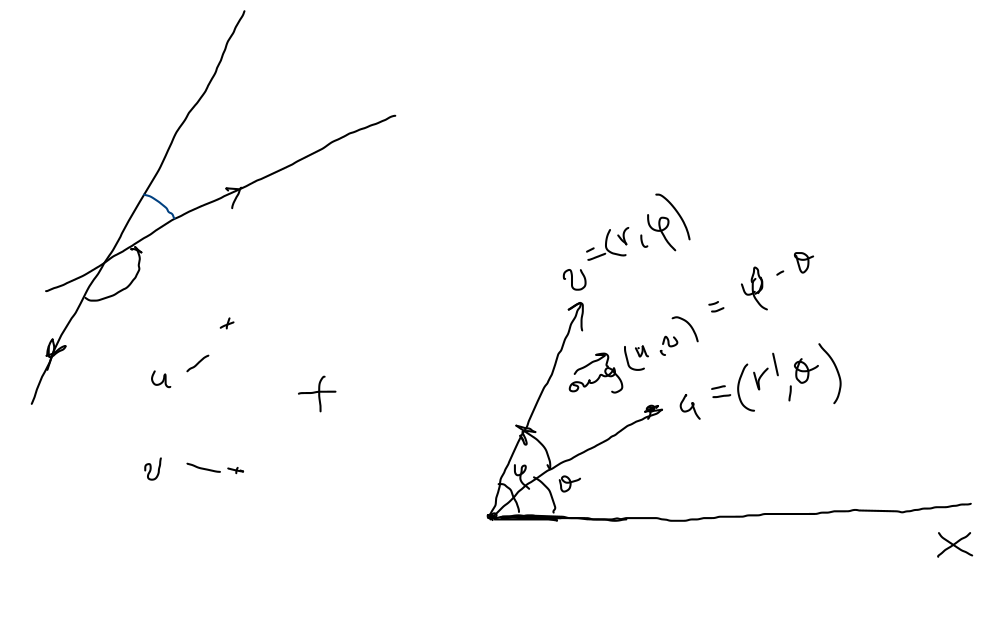 u — +
+
v — +
v = (r, φ)
ang(u, v) = φ - θ
u = (r', θ)
φ θ
X